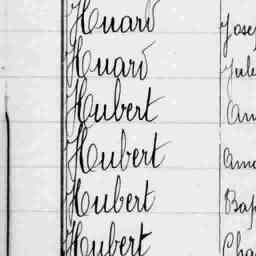 Huard Jose
Huard Jule
Hubert
Hubert
Hubert Bap
Hubert Cha